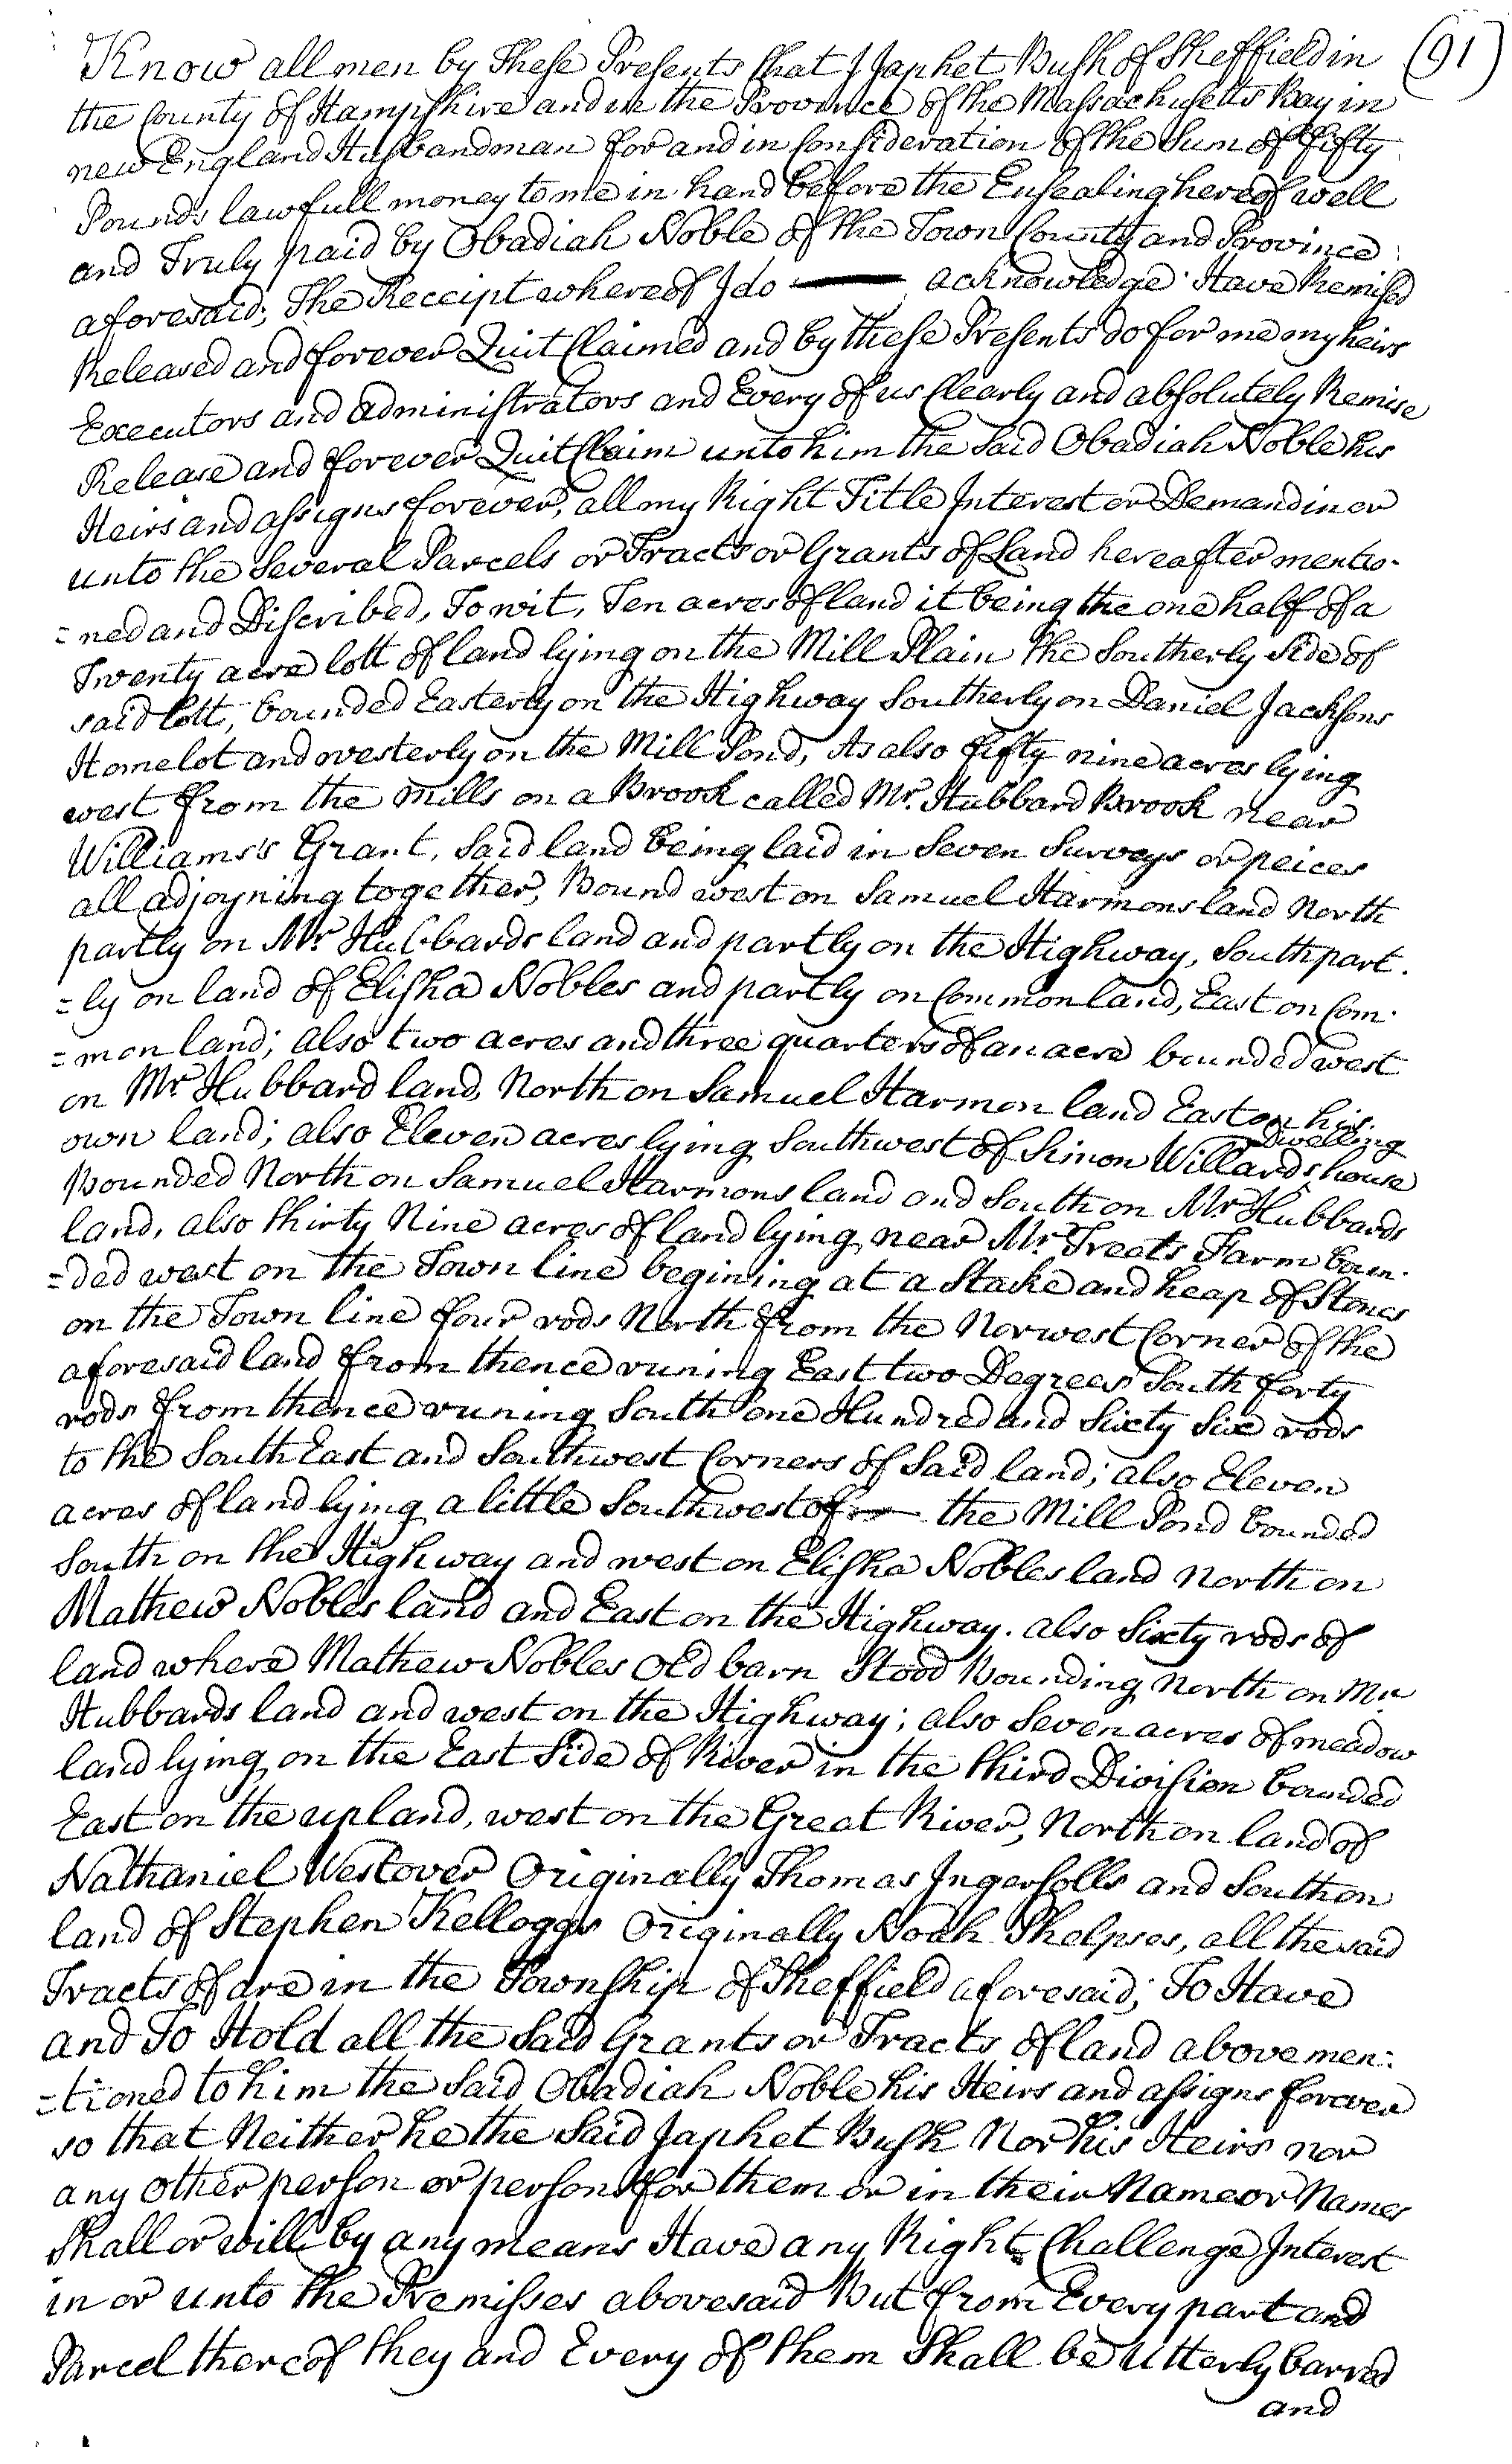 (91)
Know all men by These Presents that I Japhet Bush of Sheffield in
the County of Hampshire and in the Province of the Massachusetts Bay in
new England Husbandman for and in Consideration of the Sum of fifty
Pounds lawfull money to me in hand before the Ensealing hereof well
and Truly paid by Obadiah Noble of the Town County and Province
aforesaid; The Receipt whereof I do acknowledge Have Remised
Released and forever Quit Claimed and by these Presents do for me my heirs
Executors and administrators and Every of us Clearly and absolutely Remise
Release and forever Quit Claim unto him the Said Obadiah Noble his
Heirs and assigns forever, all my Right Title Interest or Demand in or
unto the Several Parcels or Tracts or Grants of Land hereafter mentio-
=ned and Discribed, To wit, Ten acres of land it being the one half of a
Twenty acre lott of land lying on the Mill Plain the Southerly Side of
said lott, bounded Easterly on the Highway Southerly on Daniel Jacksons
Homelot and westerly on the Mill Pond, As also fifty nine acres lying
west from the mills on a Brook called Mr. Hubbard Brook near
Williams's Grant, Said land being laid in Seven Surveys or peices
all adjoyning together, Bound west on Samuel Harmons land North
partly on Mr. Hubbards land and partly on the Highway, South part-
=ly on land of Elisha Nobles and partly on Common land, East on Com-
=mon land; also two acres and three quarters of an acre bounded west
on Mr. Hubbard land, North on Samuel Harmon land East on his
own land; also Eleven acres lying Southwest of Simon Willards dwelling house
Bounded North on Samuel Harmons land and South on Mr. Hubbards
land, also thirty Nine acres of land lying near Mr. Treats Farm boun-
=ded west on the Town line begining at a Stake and heap of Stones
on the Town line four rods North from the Norwest Corner of the
aforesaid land from thence runing East two Degrees South forty
rods from thence runing South one Hundred and Sixty Six rods
to the South East and Southwest Corners of Said land; also Eleven
acres of land lying a little Southwest of the Mill Pond bounded
South on the Highway and west on Elisha Nobles land North on
Mathew Nobles land and East on the Highway. also Sixty rods of
land where Mathew Nobles old barn Stood Bounding North on Mr
Hubbards land and west on the Highway; also Seven acres of meadow
land lying on the East Side of River in the third Division bounded
East on the upland, west on the Great River, North on land of
Nathaniel Westover Originally Thomas Ingersolls and South on
land of Stephen Kelloggs Originally Noah Phelpses, all the said
Tracts of are in the Township of Sheffield aforesaid; To Have
and To Hold all the Said Grants or Tracts of land above men-
=tioned to him the Said Obadiah Noble his Heirs and assigns forever
so that Neither he the Said Japhet Bush Nor his Heirs nor
any other person or persons for them or in their Name or Names
Shall or will by any means Have any Right Challenge Interest
in or unto the Premisses abovesaid But from Every part and
Parcel thereof they and Every of them Shall be Utterly barred
and